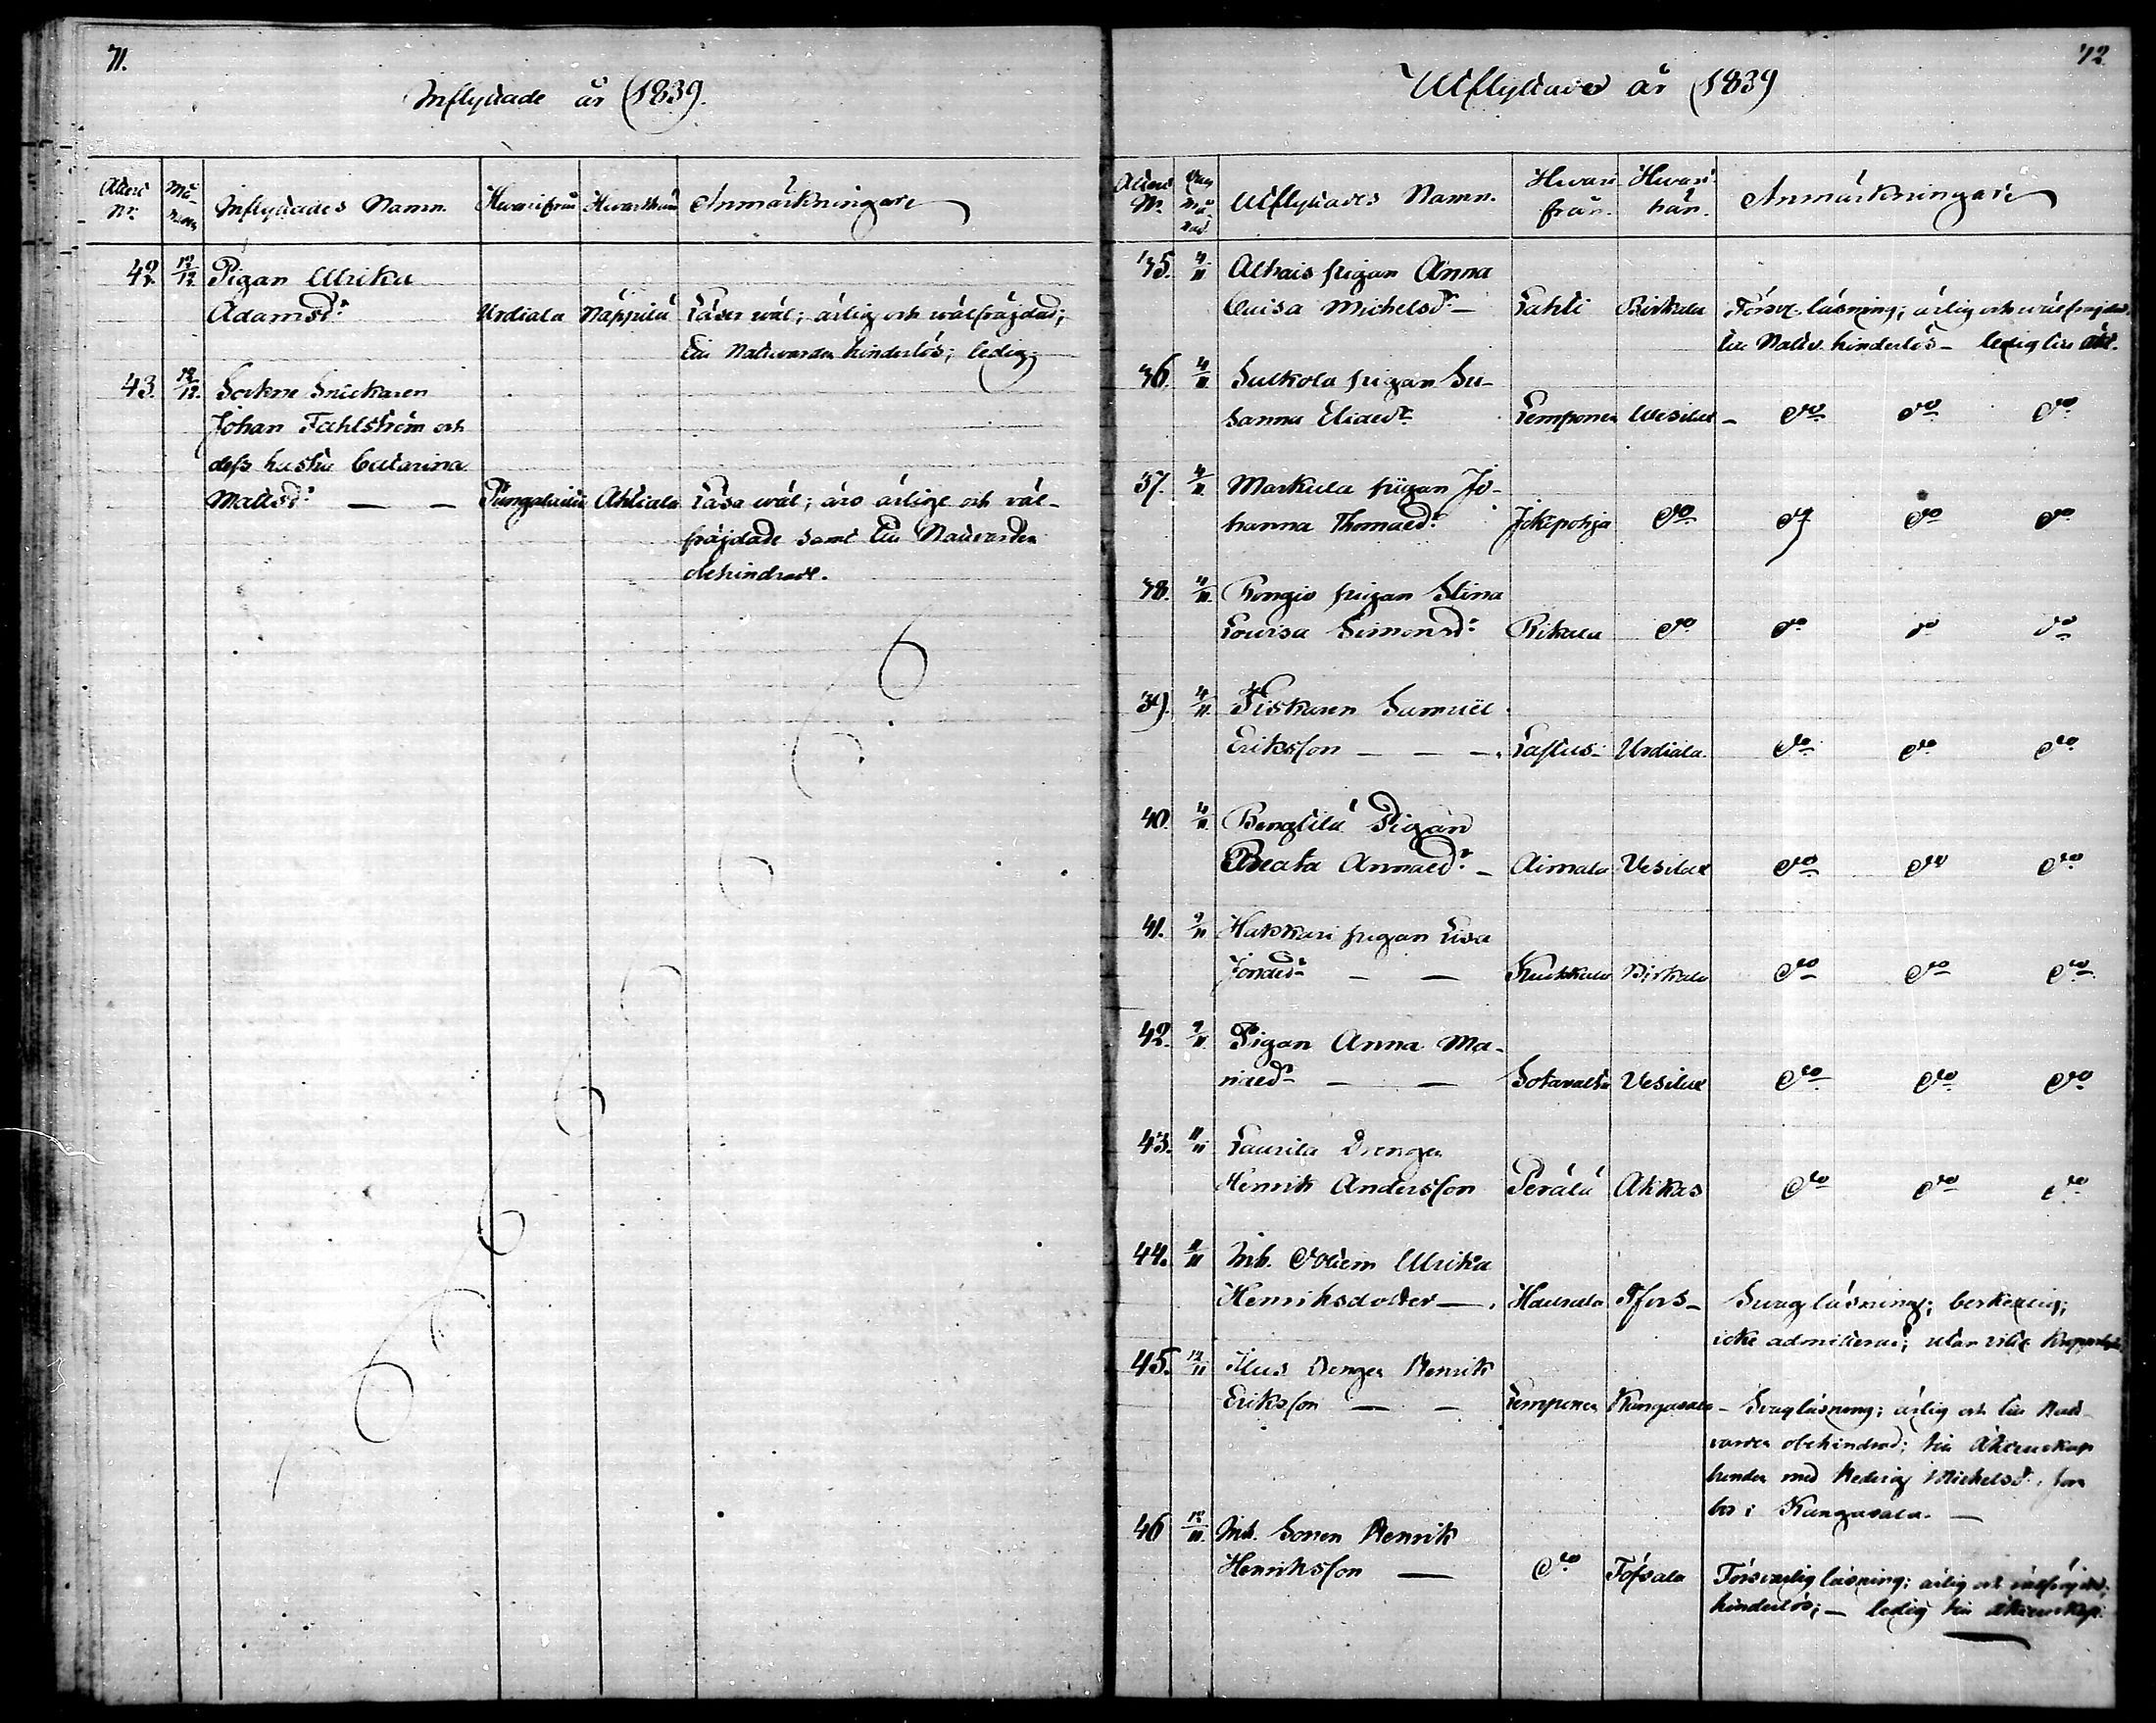 71.
Inflyttade år 1839.
Attest Nr. Månad Inflyttades Namn. Hvarifrån Hvarthän Anmärkningar
42. 12/12 Pigan Ulrika
Adamsdr Urdiala Näppilä Läser wäl; ärlig och wälfräjdad;
till Nattvarden hinderlös; ledig
43. 12/12. Sockne Snickaren
Johan Fahlström och
dess hustru Catarina
Mattsdr — — Ahtiala Läsa wäl; äro ärlige och väl-
fräjdade samt till Nattvarden
obehindrade.
72
Utflyttade år 1839
Attest Nr. Dag Månad Utflyttades Namn. Hvarifrån. Hvarthän. Anmärkningar
35. 4/11 Althais pigan Anna
Luisa Michelsdr — Lahti Birkala Försv. läsning; ärlig och wälfräjdad,
till Nattv. hinderlös — ledig till äkt.
36. 4/11 Sulkola pigan Su-
sanna Eliaedr Lempoinen Wesilax — do do do
37. 4/11 Markula pigan Jo-
hanna Thomaedr Jokipohja do do do do
38. 4/11 Rongio pigan Stina
Lowisa Simonsdr Rikala do do do do
39. 4/11 Fiskaren Samuel
Eriksson — — — Lastus Urdiala do do do
40. 4/11 Benglilä Pigan
Beata Annaedr — Aimala Vesilax do do do
41. 9/11 Hakkari pigan Lisa
Jonaedr — — Kuokkala Birkala do do do
42. 9/11 Pigan Anna Ma-
riaedr — — Sotavalta Vesilax do do do
43. 11/11 Laurila Drengen
Henrik Andersson Perälä Akkas do do do
44. 11/11 Inh. Dottern Ulrika
Henriksdotter — Hauralo Tfors — Svag läsning; beskedlig;
icke admitterad; utan
45. 12/11 Ilus Drengen Henrik
Eriksson — — Lempoinen Kangasala — Svag läsning; ärlig och till Natt-
varden obehindrad; till Äktenskap
bunden med Hedvig Michelsdr. som
bor i Kangasala. —
46 12/11. Inh. Sonen Henrik
Henriksson — do Töfsala Försvarlig läsning; ärlig och välfräjdad;
hinderlös; — ledig till äktenskap.